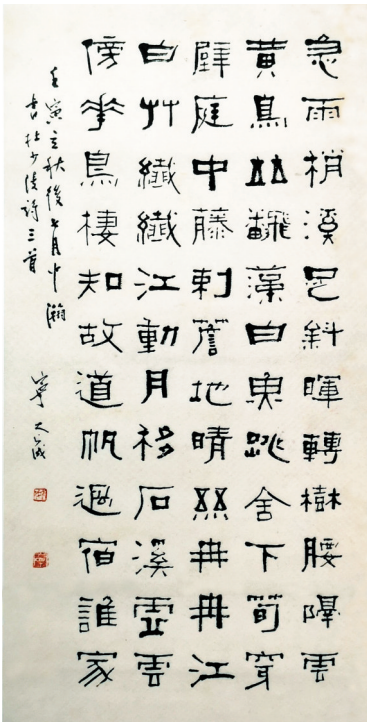 急雨梢溪足斜暉轉樹腰隔雲
黃鳥並翻藻白魚跳舍下筍穿
壁庭中藤刺簷地晴絲冉冉江
白艸纖纖江動月移石溪虛雲
傍花鳥棲知故道帆過宿誰家
壬寅立秋後七月中瀚
書杜少陵詩三首
寧斧成